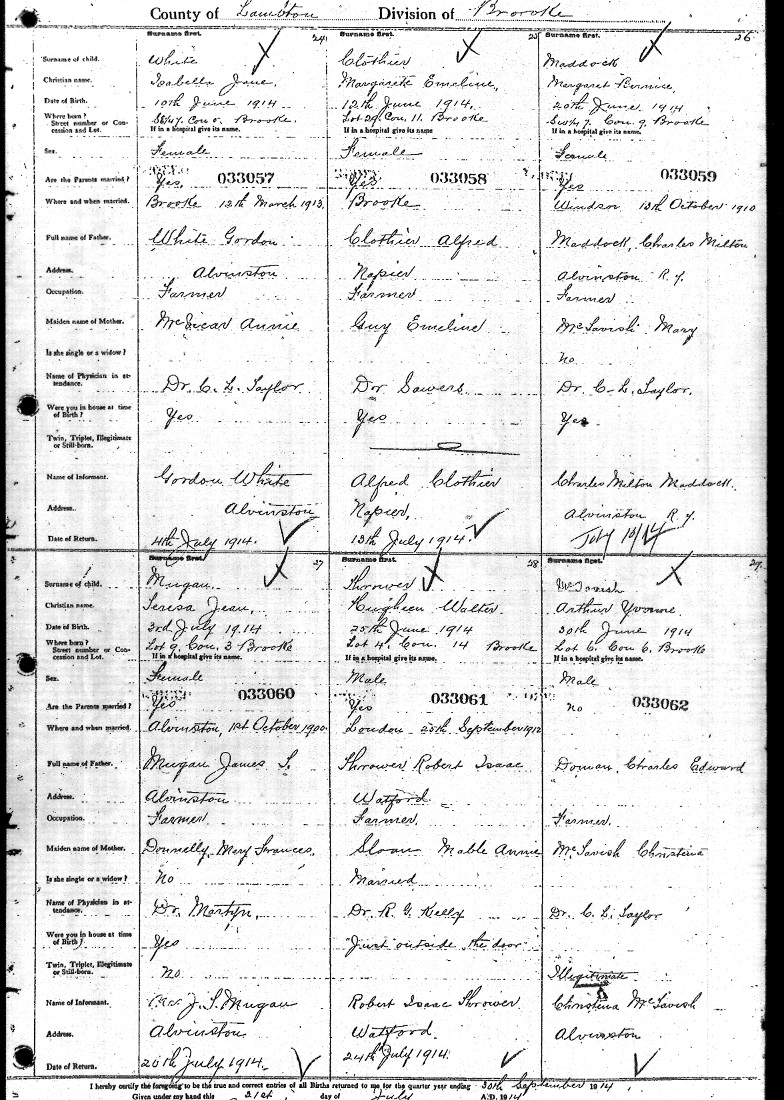 County of Lambton Division of Brooke
Surname first. 24 Surname first. 25 Surname first. 26
Surname of child. White Clothier Maddock
Christian name. Isabella Jane, Margarete Emeline, Margaret Bernice
Date of Birth. 10th June 1914 12th June 1914. 20th June 1914
Where born? Street number or Concession and Lot. Con 5. Brooke. Lot 29. Con. 11. Brooke Con. 9. Brooke
If in a hospital give its name. If in a hospital give its name If in a hospital give its name.
Sex. Female Female Female
033057 033058 033059
Are the Parents married? Yes, Yes Yes
Where and when married. Brooke 12th March 1913. Brooke Windsor 13th October 1910
Full name of Father. White Gordon Clothier Alfred Maddock, Charles Milton
Address. Alvinston Napier Alvinston R. 7.
Occupation. Farmer Farmer Farmer
Maiden name of Mother. McVicar Annie Guy Emeline McTavish Mary
Is she single or a widow? no
Name of Physician in attendance. Dr. C. L. Taylor Dr Sawers. Dr. C. L. Taylor.
Were you in house at time of Birth? Yes Yes Yes
Twin, Triplet, Illegitimate or Still-born.
Name of Informant. Gordon White Alfred Clothier Charles Milton Maddock.
Address. Alvinston Napier, Alvinston R. 7.
Date of Return. 4th July 1914. 13th July 1914. July 10/14
Surname first. 27 Surname first. 28 Surname first. 29
Surname of child. Mugan Thrower McTavish
Christian name. Teresa Jean, Walter Arthur Yvonne
Date of Birth. 3rd July 1914 25th June 1914 30th June 1914
Where born? Street number or Concession and Lot. Lot 9. Con. 3 Brooke Lot 4. Con. 14 Brooke Lot 6. Con 6. Brooke
If in a hospital give its name. If in a hospital give its name. If in a hospital give its name.
Sex. Female Male Male
033060 033061 033062
Are the Parents married? Yes Yes no
Where and when married. Alvinston, 1st October 1900. London 25th September 1912
Full name of Father. Mugan James S. Thrower Robert Isaac Doman Charles Edward
Address. Alvinston Watford
Occupation. Farmer. Farmer, Farmer.
Maiden name of Mother. Donnelly, Mary Frances. Sloan Mable Annie McTavish Christena
Is she single or a widow? No Married
Name of Physician in attendance. Dr. Martyn, Dr. R. G. Kelly Dr. C. L. Taylor
Were you in house at time of Birth? Yes Just outside the door
Twin, Triplet, Illegitimate or Still-born. no Illegitimate
Name of Informant. J. S. Mugan Robert Isaac Thrower Christena McTavish
Address. Alvinston Watford. Alvinston
Date of Return. 20th July 1914. 24th July 1914.
I hereby certify the foregoing to be the true and correct entries of all Births returned to me for the quarter year ending 30th September 1914
Given under my hand this 21st day of July A.D. 1914